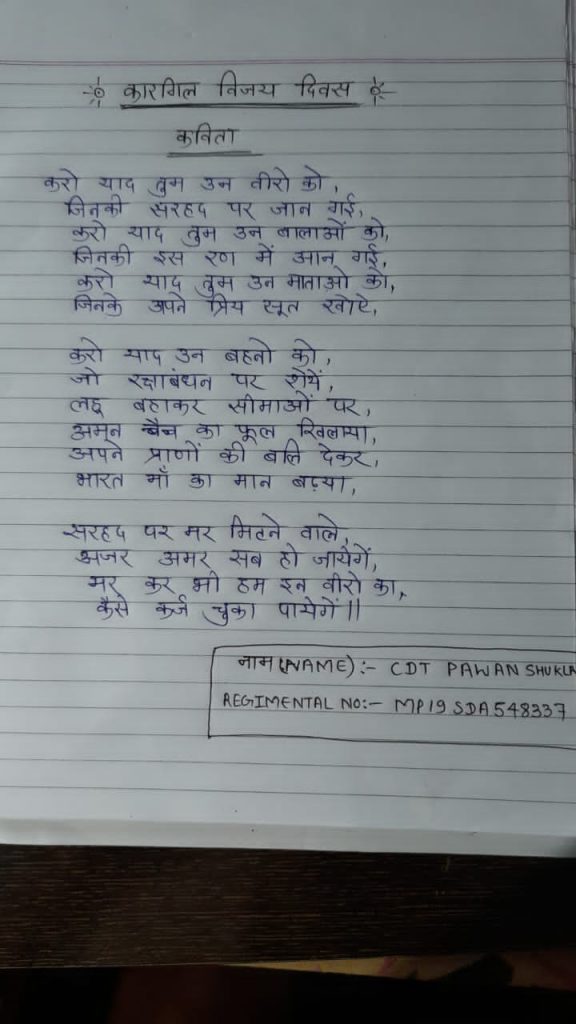 कारगिल विजय दिवस
कविता
करो याद तुम उन वीरो को,
जिनकी सरहद पर जान गई,
करो याद तुम उन बालाओं को,
जिनकी इस रण में आन गई,
करो याद तुम उन माताओ को,
जिनके अपने प्रिय सूत खोऐ,
करो याद उन बहनो को,
जो रक्षाबंधन पर रोयें,
लहू बहाकर सीमाओं पर,
अमन चैन का फूल खिलाया,
अपने प्राणों की बलि देकर,
भारत माँ का मान बढ़या,
सरहद पर मर मिटने वाले,
अजर अमर सब हो जायेगें,
मर कर भी हम इन वीरो का,
कैसे कर्ज चुका पायेगें॥
नाम (NAME):- CDT PAWAN SHUKLA
REGIMENTAL NO:- MP19SDA548337